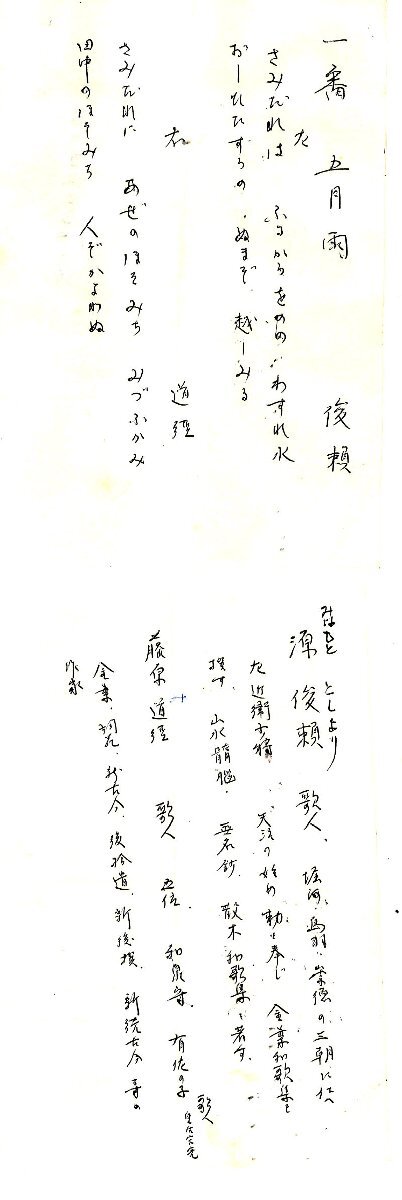 一番 五月雨 俊頼
左
さみだれは ふるからをのの わすれ水
おしひたすらの ぬまぞ 越しみる
右 道經
さみだれに あぜのほそみち みづふかみ
田中のほそみち 人ぞかよわぬ
みなもと としより
源 俊頼 歌人、堀河、鳥羽、崇徳の三朝に仕へ
左近衛少将、天治の始め勅を奉じ 金葉和歌集を
撰す 山水髄脳、無名鈔 散木和歌集を著す、
藤原道經 歌人 五位 和泉守 有佐の子
歌人
金葉、詞花、新古今、後拾遺、新後撰、新続古今等の
作家